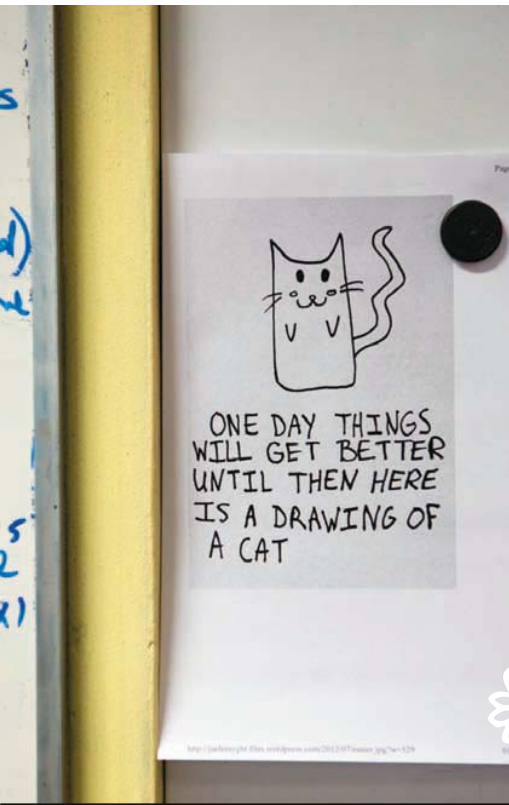 ONE DAY THINGS
WILL GET BETTER
UNTIL THEN HERE
IS A DRAWING OF
A CAT